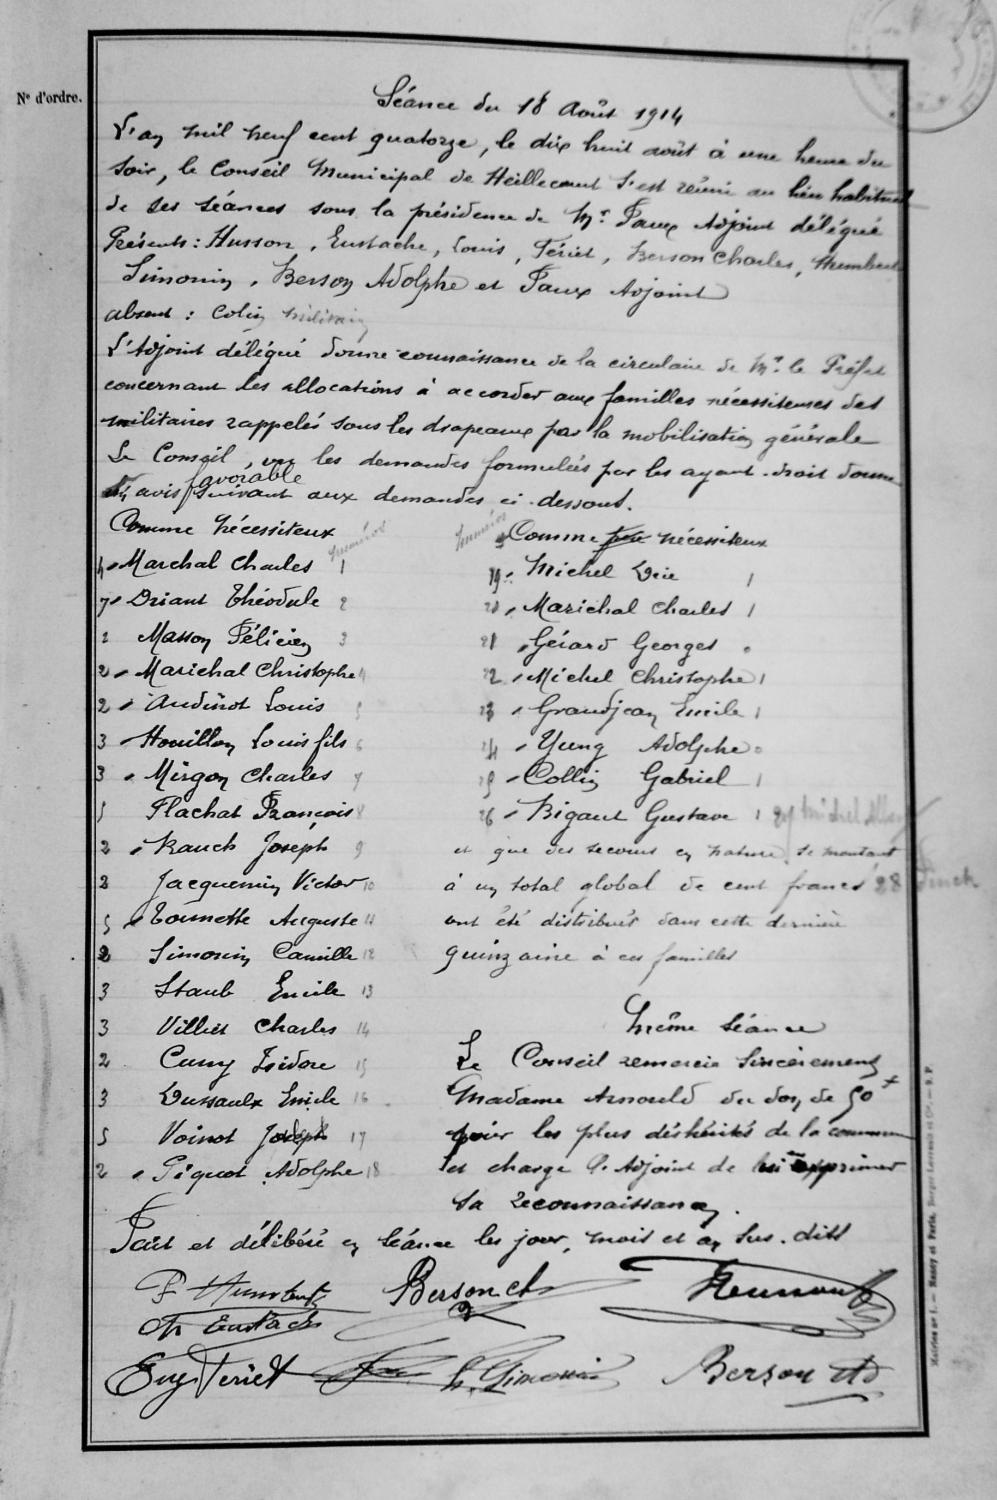 Nº d'ordre.
Séance du 18 Août 1914
L'an mil neuf cent quatorze, le dix huit août à une heure du
soir, le Conseil Municipal de Heillecourt s'est réuni au lieu habituel
de ses séances sous la présidence de Mr. Faux Adjoint délégué
Présents : Husson, Eustache, Louis, Fériet, Berson Charles, Humbert
Simonin, Berson Adolphe et Faux Adjoint
absent : Colin militaire
L'Adjoint délégué donne connaissance de la circulaire de Mr. le Préfet
concernant les allocations à accorder aux familles nécessiteuses des
militaires rappelés sous les drapeaux par la mobilisation générale
Le Conseil, vu les demandes formulées par les ayant-droit donne
avis favorable suivant aux demandes ci-dessous.
Comme nécessiteux
numéros
4 Marchal Charles 1
7 Driant Théodule 2
2 Masson Félicien 3
2 Marichal Christophe 4
2 Audinot Louis 5
3 Houillon Louis fils 6
3 Mirgon Charles 7
5 Flachat François 8
2 Rauch Joseph 9
2 Jacquemin Victor 10
5 Tournette Auguste 11
2 Simonin Camille 12
3 Staub Emile 13
3 Villiet Charles 14
2 Cuny Isidore 15
3 Dussaulx Emile 16
5 Voinot Joseph 17
2 Piquot Adolphe 18
numéros
Comme nécessiteux
19 Michel 1
20 Marichal Charles 1
21 Gérard Georges 0
22 Michel Christophe 1
23 Grandjean Emile 1
24 Yung Adolphe 0
25 Collin Gabriel 1
26 Bigaut Gustave 1 27 Michel
et que des secours en nature se montant
à un total global de cent francs 28
ont été distribués dans cette dernière
quinzaine à ces familles
Même séance
Le Conseil remercie sincèrement
Madame Arnould du don de 50 f
pour les plus déshérités de la commune
et charge l'Adjoint de lui exprimer
sa reconnaissance.
Fait et délibéré en séance les jour, mois et an sus-dits
F Humbert Berson Ch
Ch Eustache
Eug Fériet Simonin Berson Ad
Mairies nº 1. — Nancy et Paris, Berger-Levrault et Cie. — S.P.